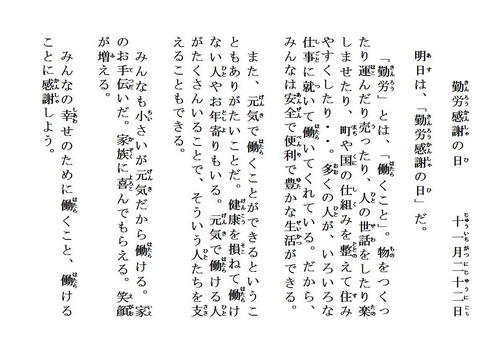 勤労感謝の日　　十一月二十二日
明日は、「勤労感謝の日」だ。
「勤労」とは、「働くこと」。物をつくっ
たり運んだり売ったり、人の世話をしたり楽
しませたり、町や国の仕組みを整えて住み
やすくしたり・・。多くの人が、いろいろな
仕事に就いて働いてくれている。だから、
みんなは安全で便利で豊かな生活ができる。
また、元気で働くことができるというこ
ともありがたいことだ。健康を損ねて働け
ない人やお年寄りもいる。元気で働ける人
がたくさんいることで、そういう人たちを支
えることもできる。
みんなも小さいが元気だから働ける。家
のお手伝いだ。家族に喜んでもらえる。笑顔
が増える。
みんなの幸せのために働くこと、働ける
ことに感謝しよう。